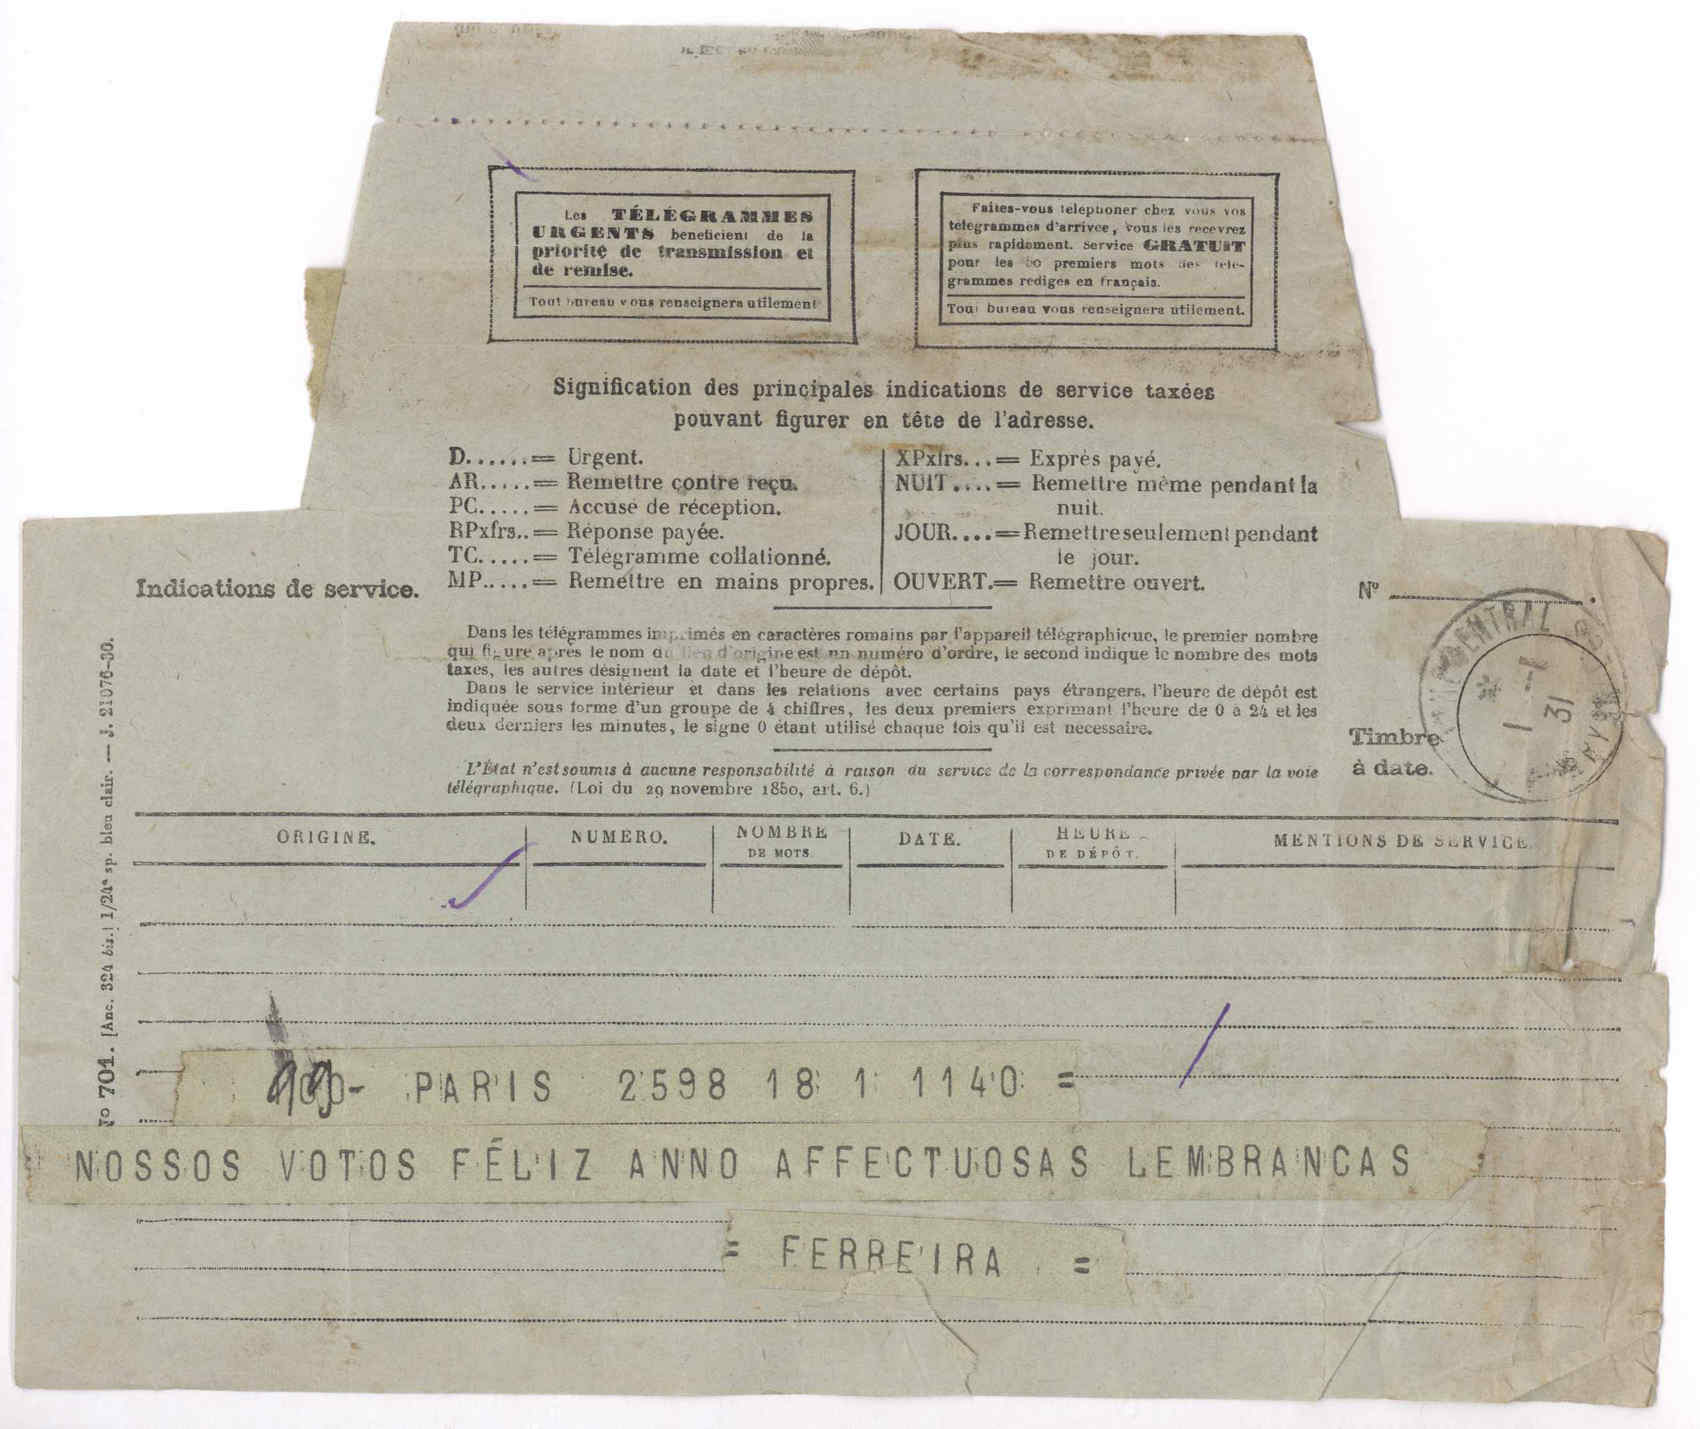 Les TÉLÉGRAMMES
URGENTS beneficient de la
priorité de transmission et
de remise.
Tout bureau vous renseignera utilement
Faites-vous telephoner chez vous vos
telegrammes d'arrivee, vous les recevrez
plus rapidement. Service GRATUIT
pour les 50 premiers mots des tele-
grammes rediges en français.
Tout bureau vous renseignera utilement.
Signification des principales indications de service taxées
pouvant figurer en tête de l'adresse.
D......= Urgent.
AR.....= Remettre contre reçu.
PC.....= Accusé de réception.
RPxfrs..= Réponse payée.
TC.....= Télégramme collationné.
MP.....= Remettre en mains propres.
XPxfrs...= Exprès payé.
NUIT....= Remettre même pendant la
nuit.
JOUR....= Remettre seulement pendant
le jour.
OUVERT.= Remettre ouvert.
Indications de service.
Nº
Dans les télégrammes imprimés en caractères romains par l'appareil télégraphique, le premier nombre
qui figure après le nom du lieu d'origine est un numéro d'ordre, le second indique le nombre des mots
taxes, les autres désignent la date et l'heure de dépôt.
Dans le service intérieur et dans les relations avec certains pays étrangers, l'heure de dépôt est
indiquée sous forme d'un groupe de 4 chiffres, les deux premiers exprimant l'heure de 0 à 24 et les
deux derniers les minutes, le signe 0 étant utilisé chaque fois qu'il est necessaire.
L'État n'est soumis à aucune responsabilité à raison du service de la correspondance privée par la voie
télégraphique. (Loi du 29 novembre 1850, art. 6.)
Timbre
à date.
CENTRAL
1 - 1
31
Nº 701. [Anc. 324 bis.] 1/24ª sp. bleu clair. — J. 21076-30.
ORIGINE.
NUMÉRO.
NOMBRE
DE MOTS.
DATE.
HEURE
DE DÉPÔT.
MENTIONS DE SERVICE.
PARIS 2598 18 1 1140 =
NOSSOS VOTOS FÉLIZ ANNO AFFECTUOSAS LEMBRANCAS
= FERREIRA =